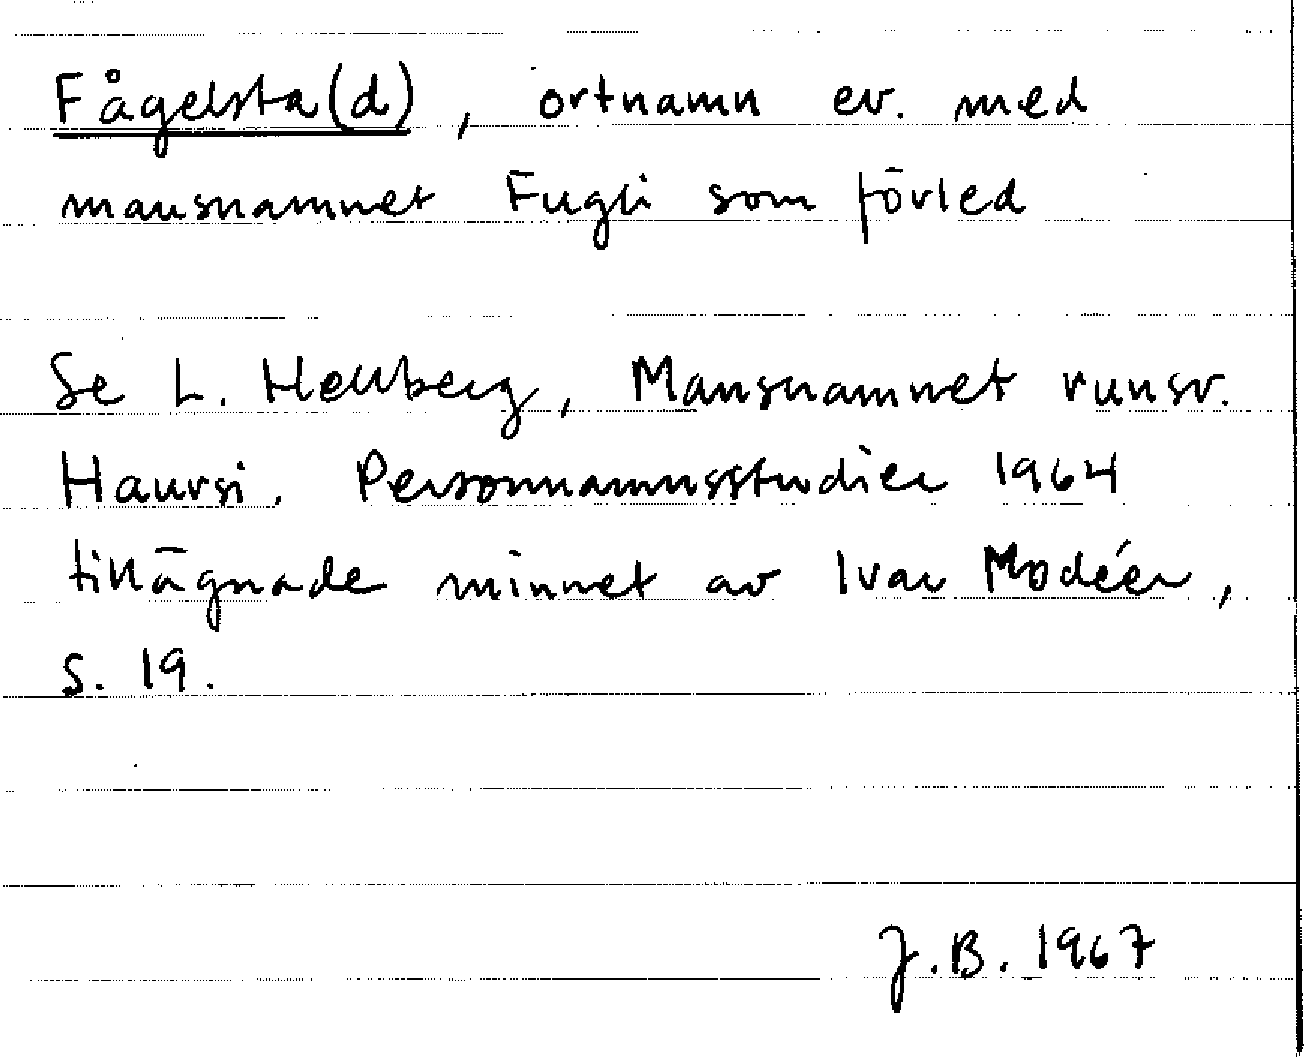 Fågelsta(d), ortnamn ev. med
mansnamnet Fugli som förled
Se L. Hellberg, Mansnamnet runsv.
Haursi. Personnamnsstudier 1964
tillägnade minnet av Ivar Modéer,
S. 19.
J.B. 1967